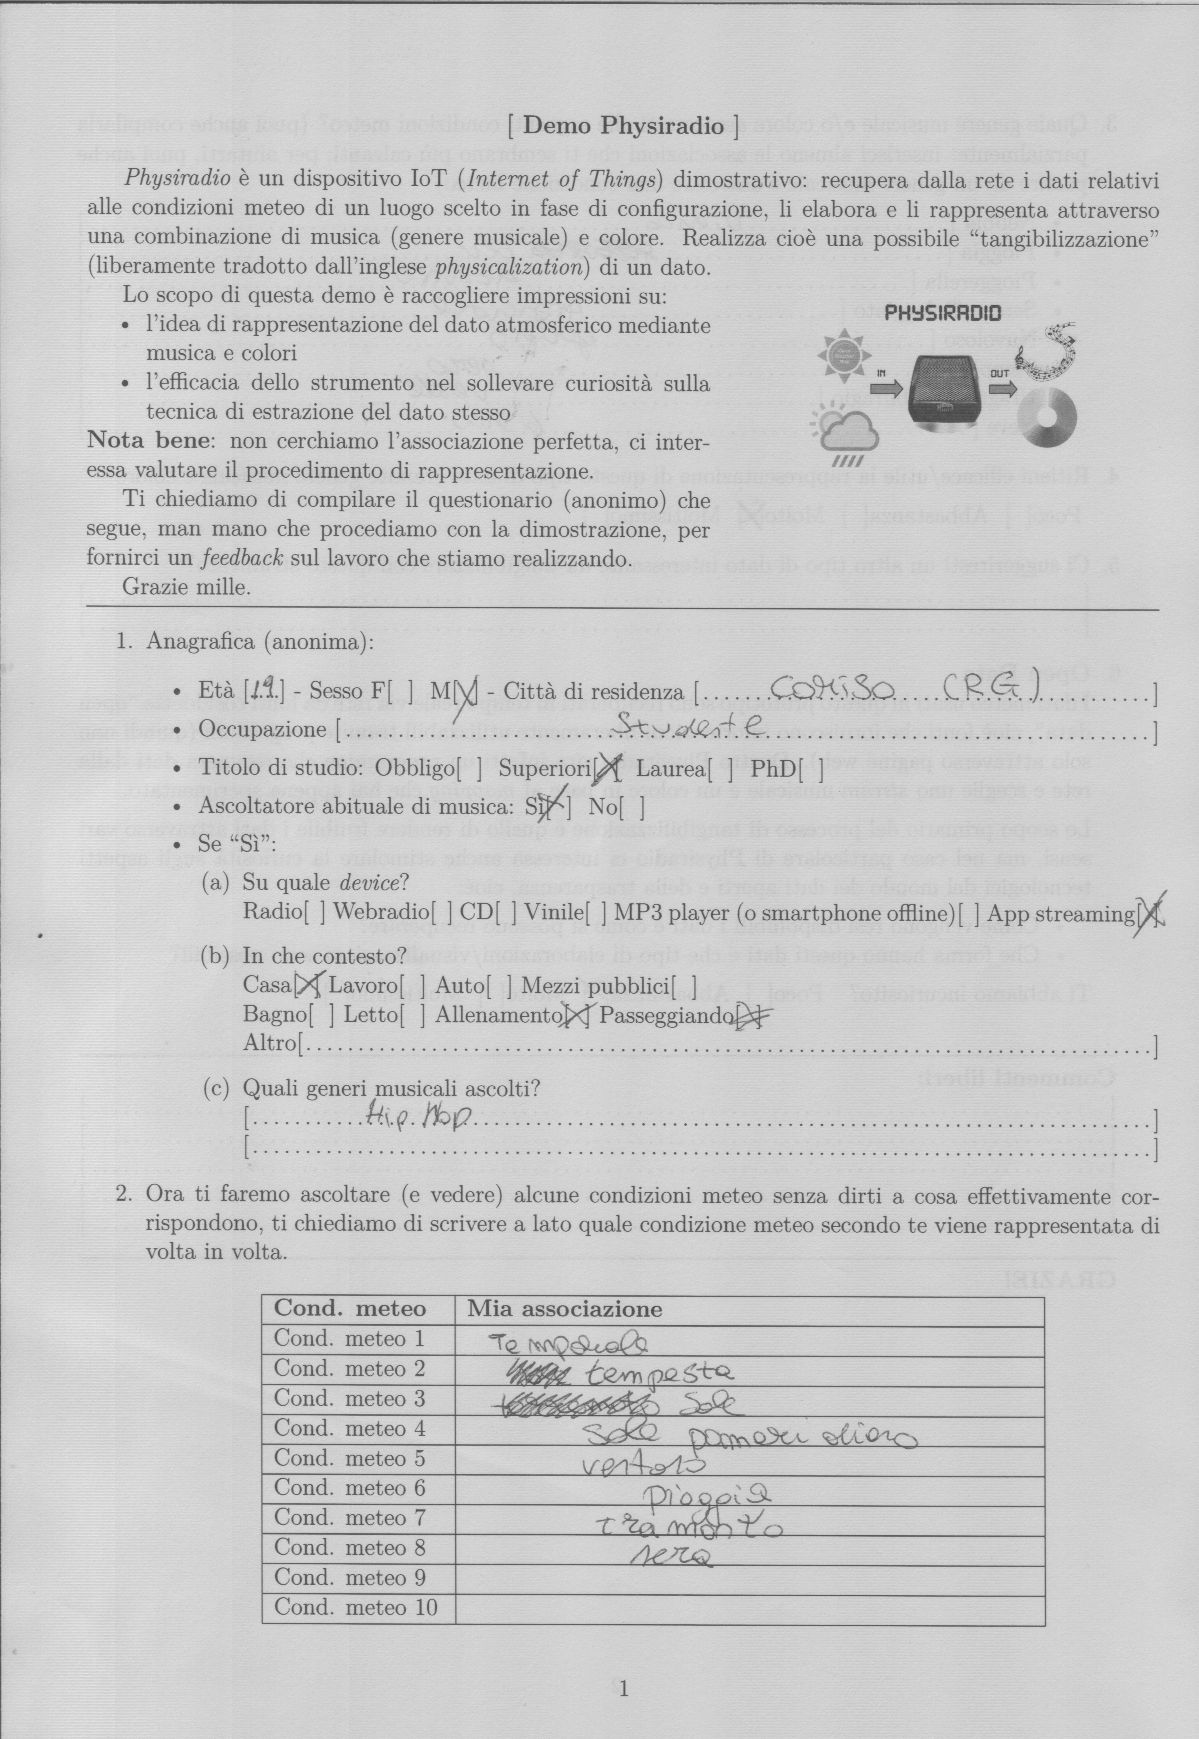 [ Demo Physiradio ]
Physiradio è un dispositivo IoT (Internet of Things) dimostrativo: recupera dalla rete i dati relativi
alle condizioni meteo di un luogo scelto in fase di configurazione, li elabora e li rappresenta attraverso
una combinazione di musica (genere musicale) e colore. Realizza cioè una possibile “tangibilizzazione”
(liberamente tradotto dall'inglese physicalization) di un dato.
Lo scopo di questa demo è raccogliere impressioni su:
• l'idea di rappresentazione del dato atmosferico mediante
musica e colori
• l'efficacia dello strumento nel sollevare curiosità sulla
tecnica di estrazione del dato stesso
Nota bene: non cerchiamo l'associazione perfetta, ci inter-
essa valutare il procedimento di rappresentazione.
Ti chiediamo di compilare il questionario (anonimo) che
segue, man mano che procediamo con la dimostrazione, per
fornirci un feedback sul lavoro che stiamo realizzando.
Grazie mille.
PHYSIRADIO
IN OUT
1. Anagrafica (anonima):
• Età [19] - Sesso F[ ] M[X] - Città di residenza [ COMISO (RG) ]
• Occupazione [ Studente ]
• Titolo di studio: Obbligo[ ] Superiori[X] Laurea[ ] PhD[ ]
• Ascoltatore abituale di musica: Sì[X] No[ ]
• Se “Sì”:
(a) Su quale device?
Radio[ ] Webradio[ ] CD[ ] Vinile[ ] MP3 player (o smartphone offline)[ ] App streaming[X]
(b) In che contesto?
Casa[X] Lavoro[ ] Auto[ ] Mezzi pubblici[ ]
Bagno[ ] Letto[ ] Allenamento[X] Passeggiando[X]
Altro[ ]
(c) Quali generi musicali ascolti?
[ Hip Hop ]
[ ]
2. Ora ti faremo ascoltare (e vedere) alcune condizioni meteo senza dirti a cosa effettivamente cor-
rispondono, ti chiediamo di scrivere a lato quale condizione meteo secondo te viene rappresentata di
volta in volta.
Cond. meteo Mia associazione
Cond. meteo 1 Temporale
Cond. meteo 2 tempesta
Cond. meteo 3 Sole
Cond. meteo 4 Sole pomeridiano
Cond. meteo 5 ventoso
Cond. meteo 6 pioggia
Cond. meteo 7 tramonto
Cond. meteo 8 sera
Cond. meteo 9
Cond. meteo 10
1